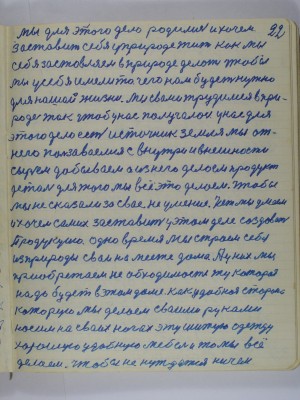 22
Мы для этого дело родились и хочем
заставит себя у природе жит как мы
себя заставляем в природе делат чтобы
мы у себя имели то чего нам будет нужно
для нашей жизни. Мы свами трудимся в при-
роде так чтобы у нас получалося у нас для
этого дело сет источник земля мы от-
него пользываемся с внутри а внешности
сырьем добываем а из него делаем продукт
детал для того мы всё это делаем. Чтобы
мы не сказали за свае не умение. Нет мы умеем
и хочем самих заставит у этом деле создават
Продукцию. Одно время мы строем себе
из природы свой на месте дома. А у них мы
приобретаем не обходимости ту которая
надо будет в этом доме как удобная сторона
которую мы делаем своими руками
носим на своих ногах эту шитую одежду
хорошую удобную мебел и то мы всё
делаем. Чтобы не нуждатся ничем